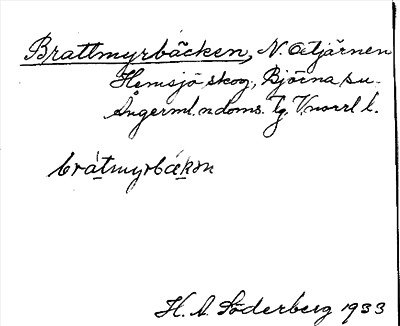 Brattmyrbäcken, N. Otjärnen
Hemsjö skog, Björna su.
Ångerml. n. doms. tg. V.norrl. l.
bråtmyrbäkən
H. A. Söderberg 1933